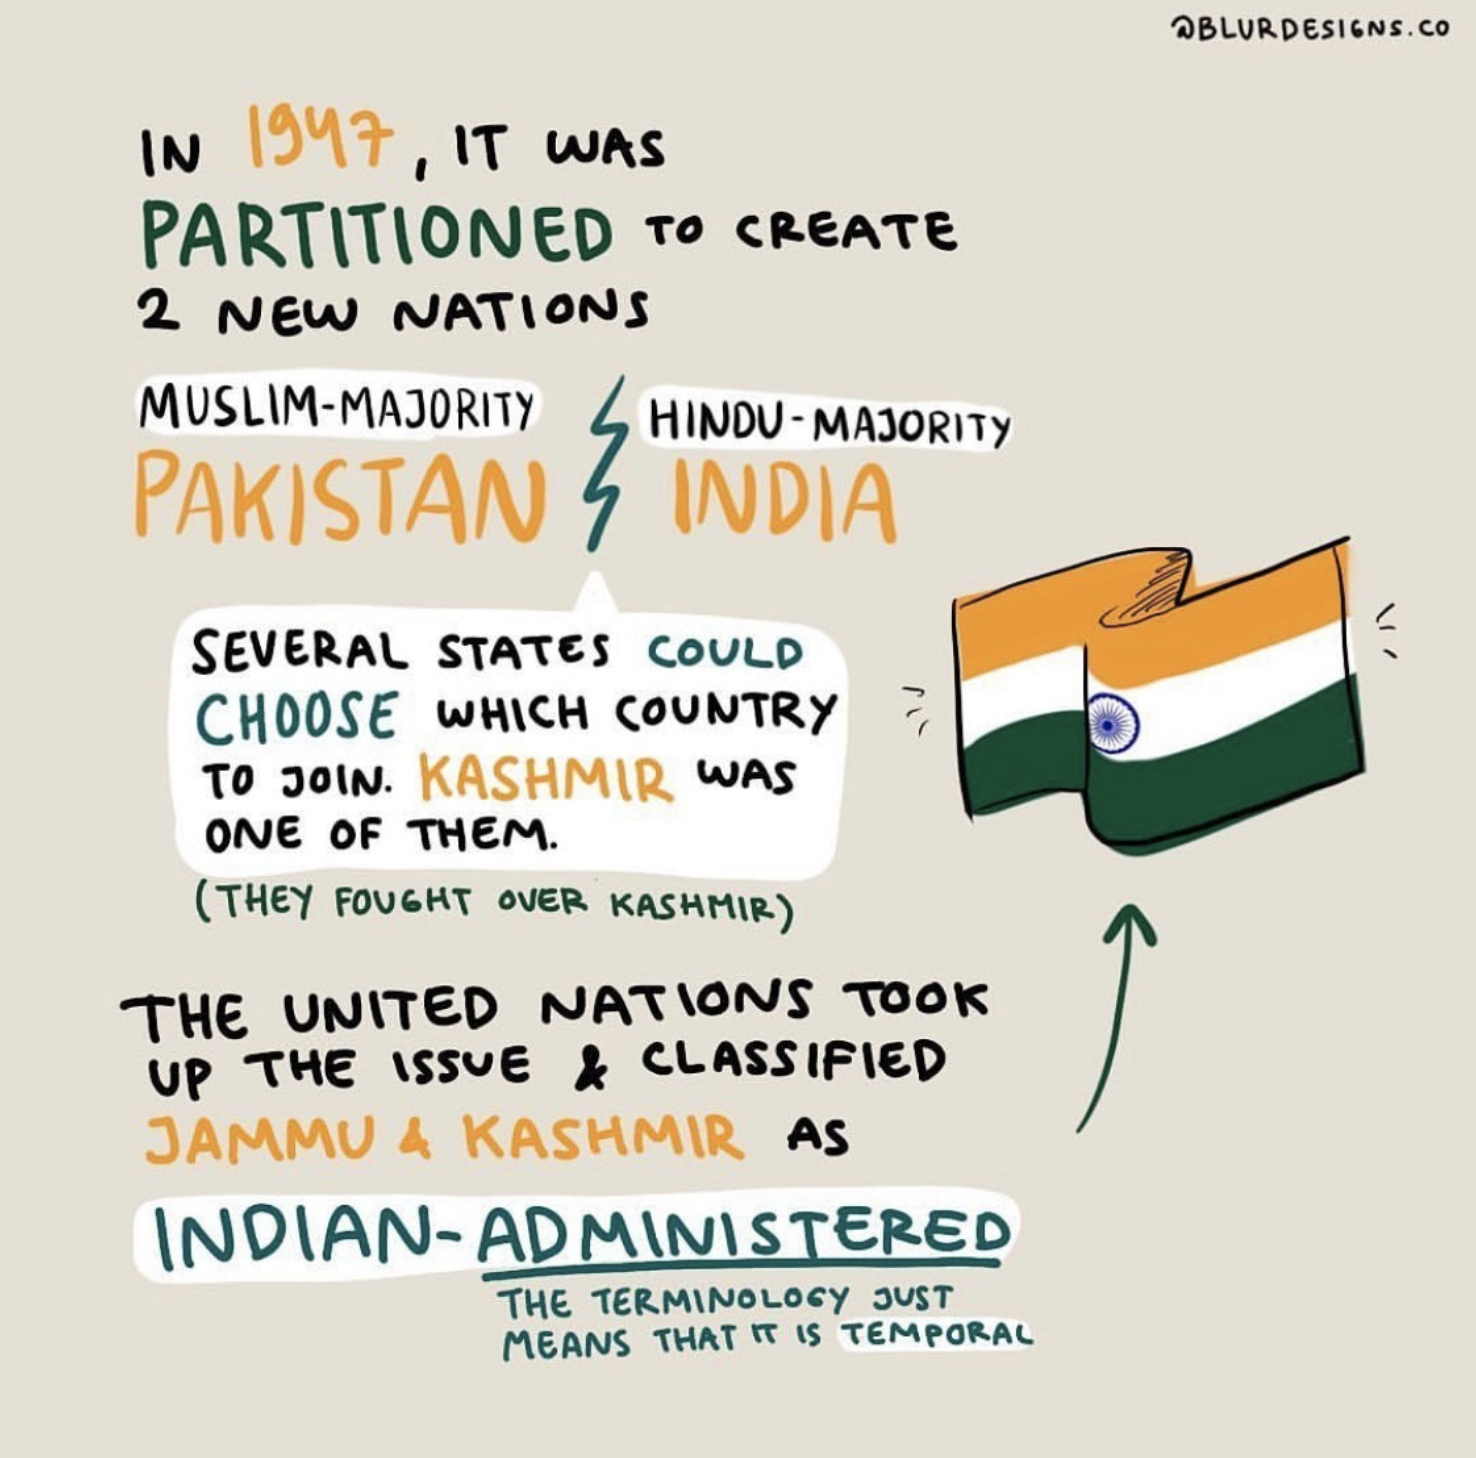 @BLURDESIGNS.CO
IN 1947, IT WAS
PARTITIONED TO CREATE
2 NEW NATIONS
MUSLIM-MAJORITY
PAKISTAN
HINDU-MAJORITY
INDIA
SEVERAL STATES COULD
CHOOSE WHICH COUNTRY
TO JOIN. KASHMIR WAS
ONE OF THEM.
(THEY FOUGHT OVER KASHMIR)
THE UNITED NATIONS TOOK
UP THE ISSUE & CLASSIFIED
JAMMU & KASHMIR AS
INDIAN-ADMINISTERED
THE TERMINOLOGY JUST
MEANS THAT IT IS TEMPORAL